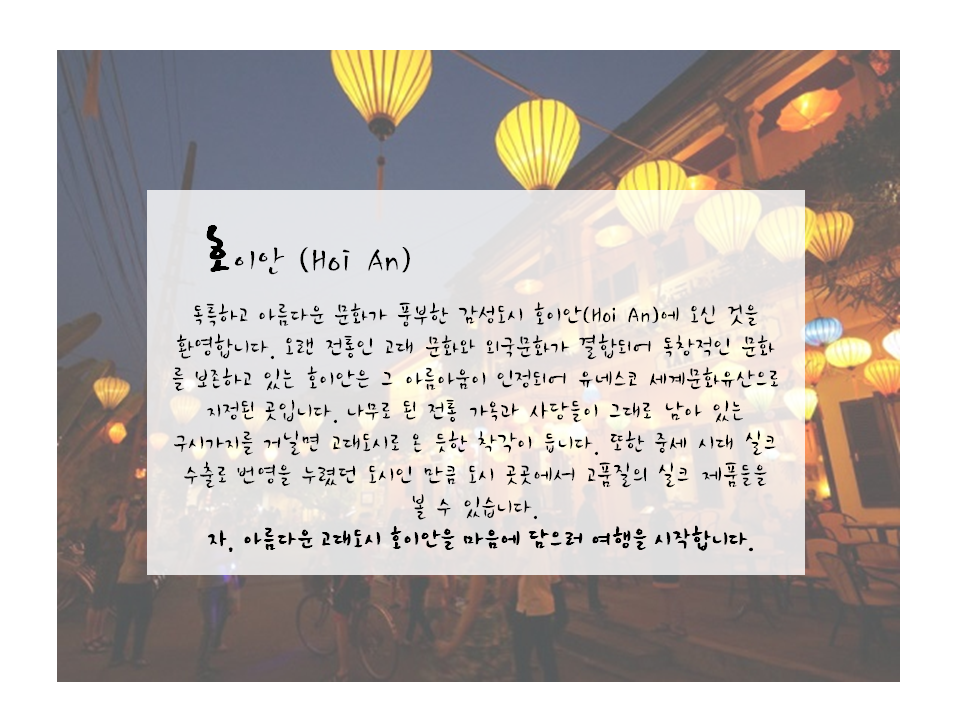 호이안 (Hoi An)
독특하고 아름다운 문화가 풍부한 감성도시 호이안(Hoi An)에 오신 것을
환영합니다. 오랜 전통인 고대 문화와 외국문화가 결합되어 독창적인 문화
를 보존하고 있는 호이안은 그 아름아움이 인정되어 유네스코 세계문화유산으로
지정된 곳입니다. 나무로 된 전통 가옥과 사당들이 그대로 남아 있는
구시가지를 거닐면 고대도시로 온 듯한 착각이 듭니다. 또한 중세 시대 실크
수출로 번영을 누렸던 도시인 만큼 도시 곳곳에서 고품질의 실크 제품들을
볼 수 있습니다.
자, 아름다운 고대도시 호이안을 마음에 담으러 여행을 시작합니다.